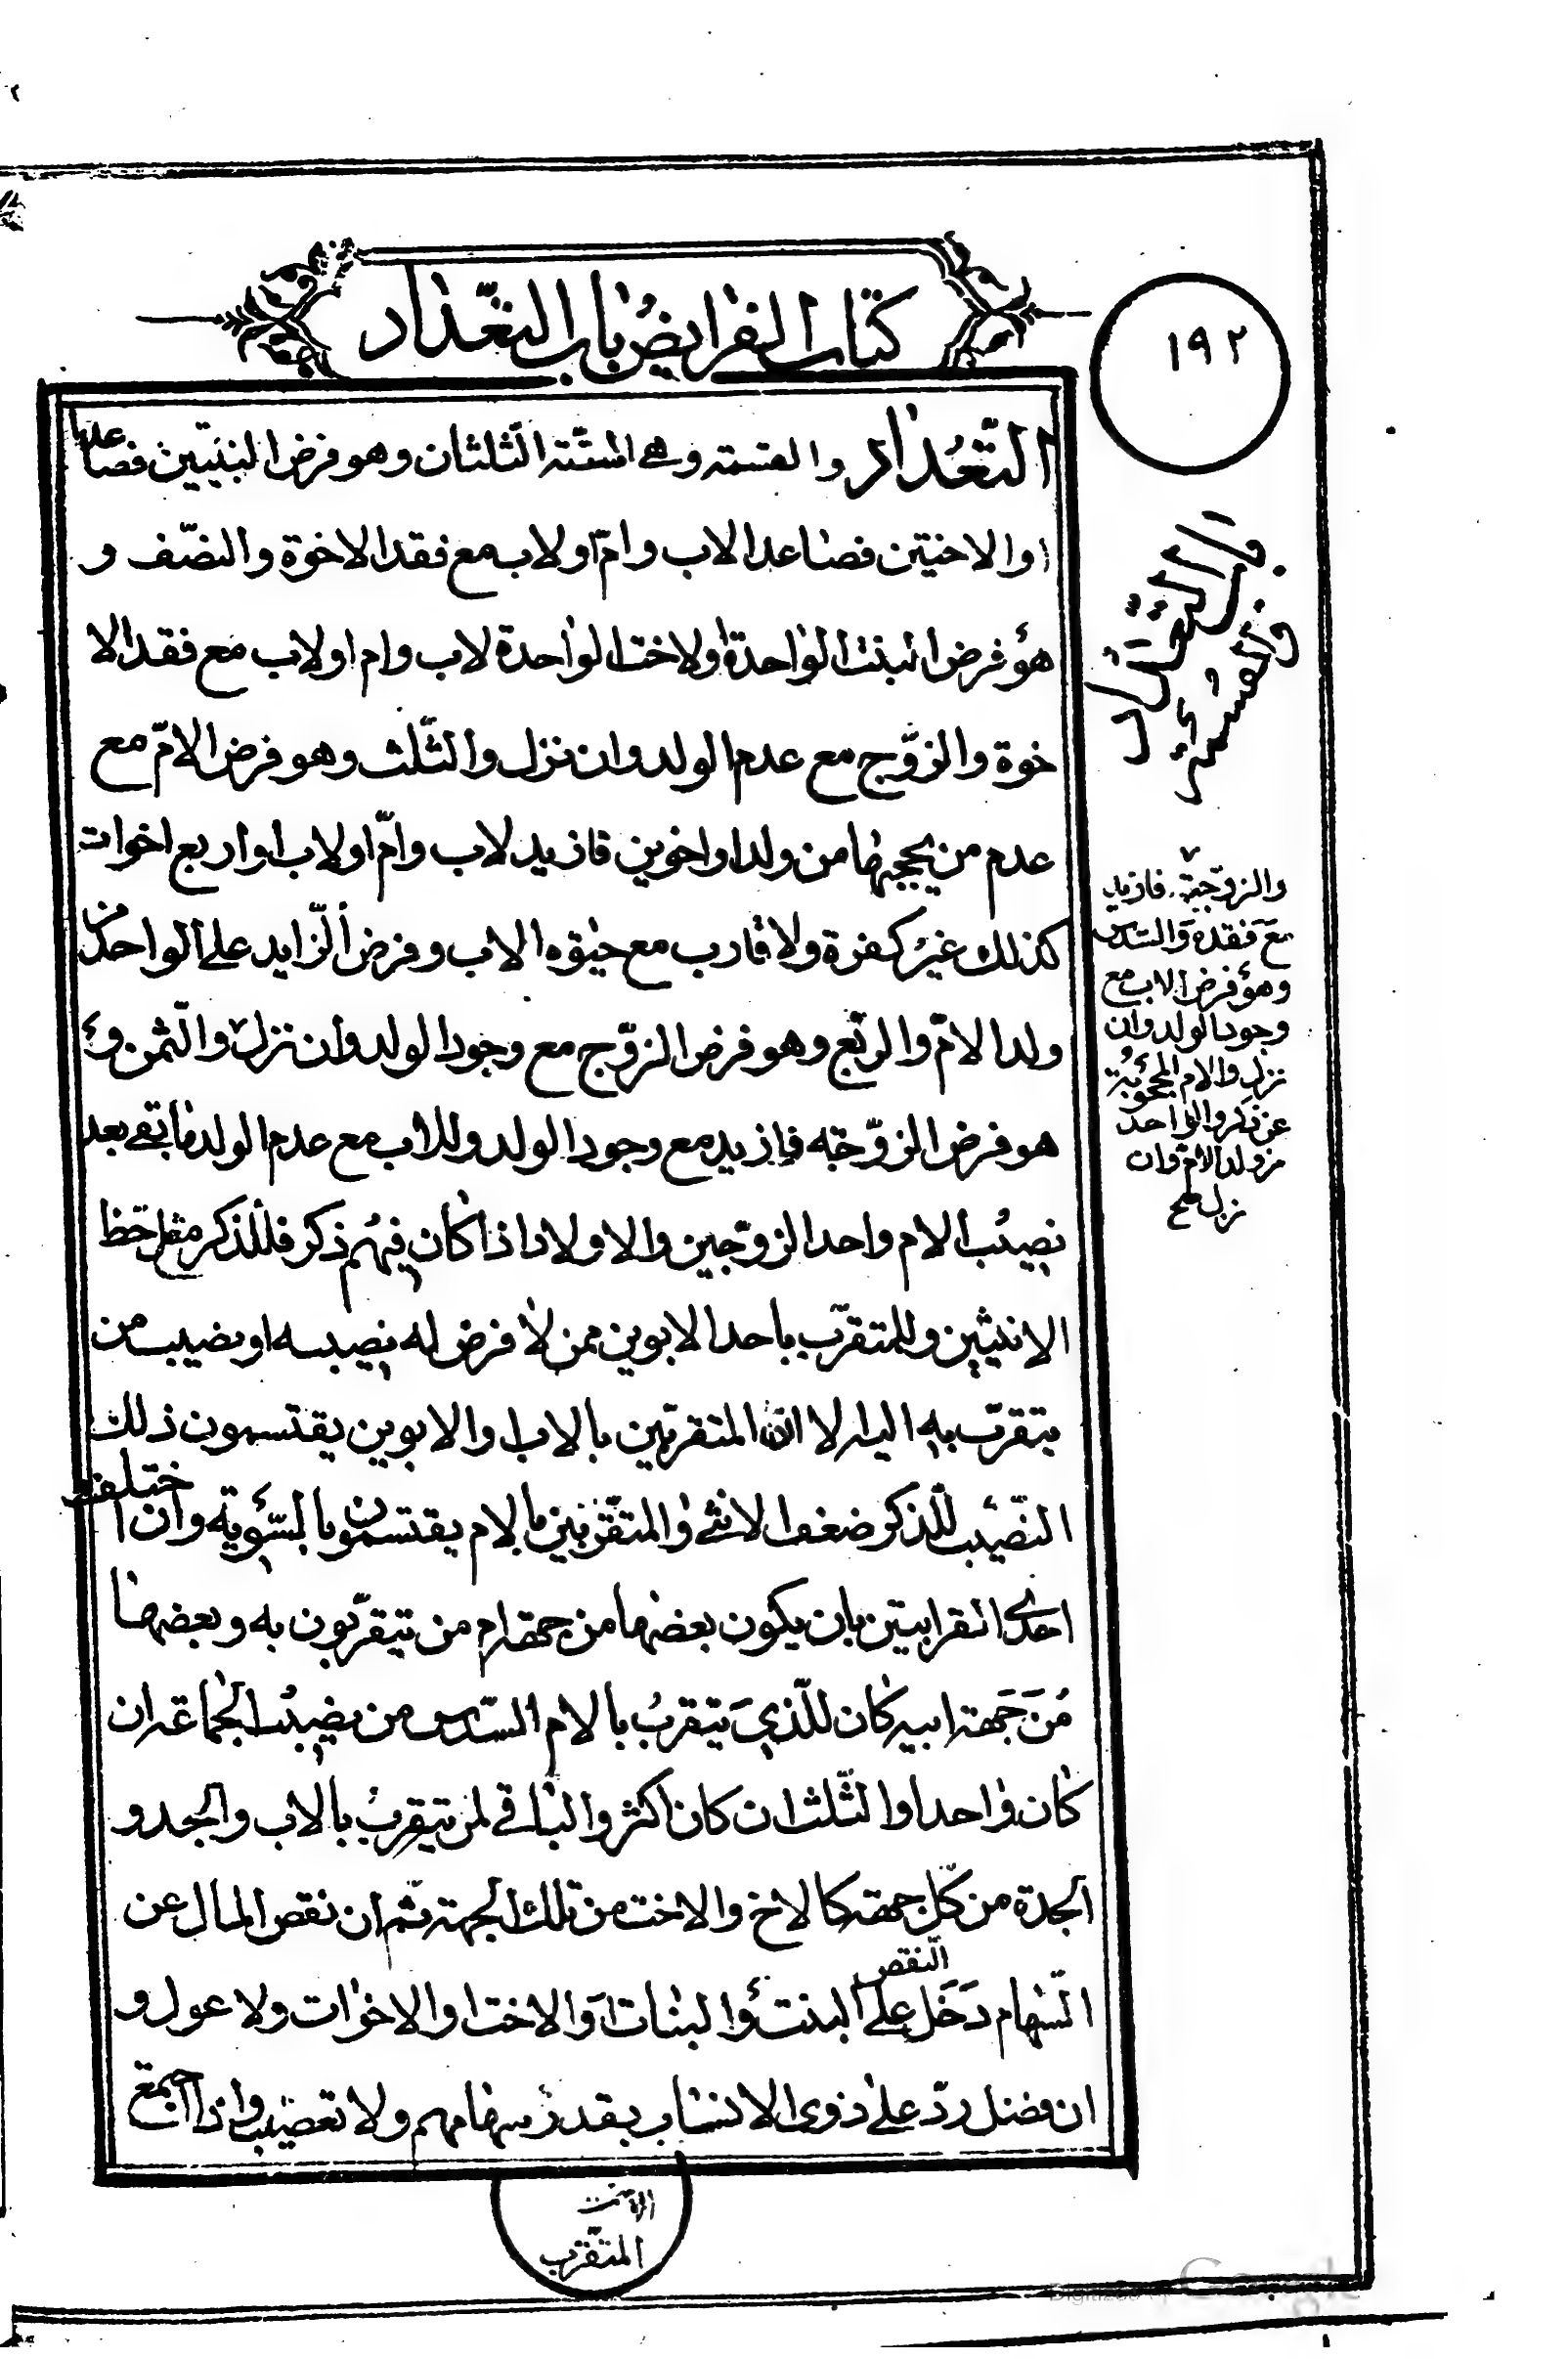 ١٩٢
كتاب الفرايض باب التعداد
التّعداد والقسمة وهى الستّة الثّلثان وهو فرض البنتين فصاعدا
او الاختين فصاعدا لاب وامّ او لاب مع فقد الاخوة والنصّف و
هو فرض البنت الواحدة ولاخت الواحدة لاب وام او لاب مع فقد الا
خوة والزوّج مع عدم الولد وان نزل والثّلث وهو فرض الامّ مع
عدم من يحجبها من ولد او اخوين فازيد لاب وامّ او لاب او اربع اخوات
كذلك غير كفرة ولا قارب مع حيوة الاب وفرض الزّايد على الواحد من
ولد الامّ والربّع وهو فرض الزوّج مع وجود الولد وان نزل والثّمن و
هو فرض الزوّجة فازيد مع وجود الولد وللاب مع عدم الولد ما بقى بعد
نصيب الام واحد الزوّجين والاولاد اذا كان فيهم ذكر فللذكر مثل حظ
الانثيين وللمتقرّب باحد الابوين ممن لا فرض له نصيبه او نصيب من
يتقرّب به اليه لا ان المتقربين بالاب او الابوين يقتسمون ذلك
النّصيب للّذكر ضعف الانثى والمتقّربين بالام يقتسمون بالسّوية وان اختلف
احدى القرابتين بان يكون بعضها من جهة ام من يتقرّبون به وبعضها
من جهة ابيه كان للّذى يتقرب بالام السّدس من نصيب الجماعة ان
كان واحدا والثّلث ان كان اكثر والباقى لمن يتقرب بالاب والجد و
الجدة من كلّ جهة كالاخ والاخت من تلك الجهة ثم ان نقص المال عن
السّهام دخل النّقص على البنت والبنات او الاخت او الاخوات ولا عول و
ان فضل ردّ على ذوى الانساب بقدر سهامهم ولا تعصيب واذا اجتمع
المتقرّب
باب التعداد
والقسمة
والزوّجة فازيد
مع فقده والسّدس
وهو فرض الاب مع
وجود الولد وان
نزل والام المحجوبة
عن ذكر والواحد
من ولد الامّ وان
نزل صح
Digitized by Google